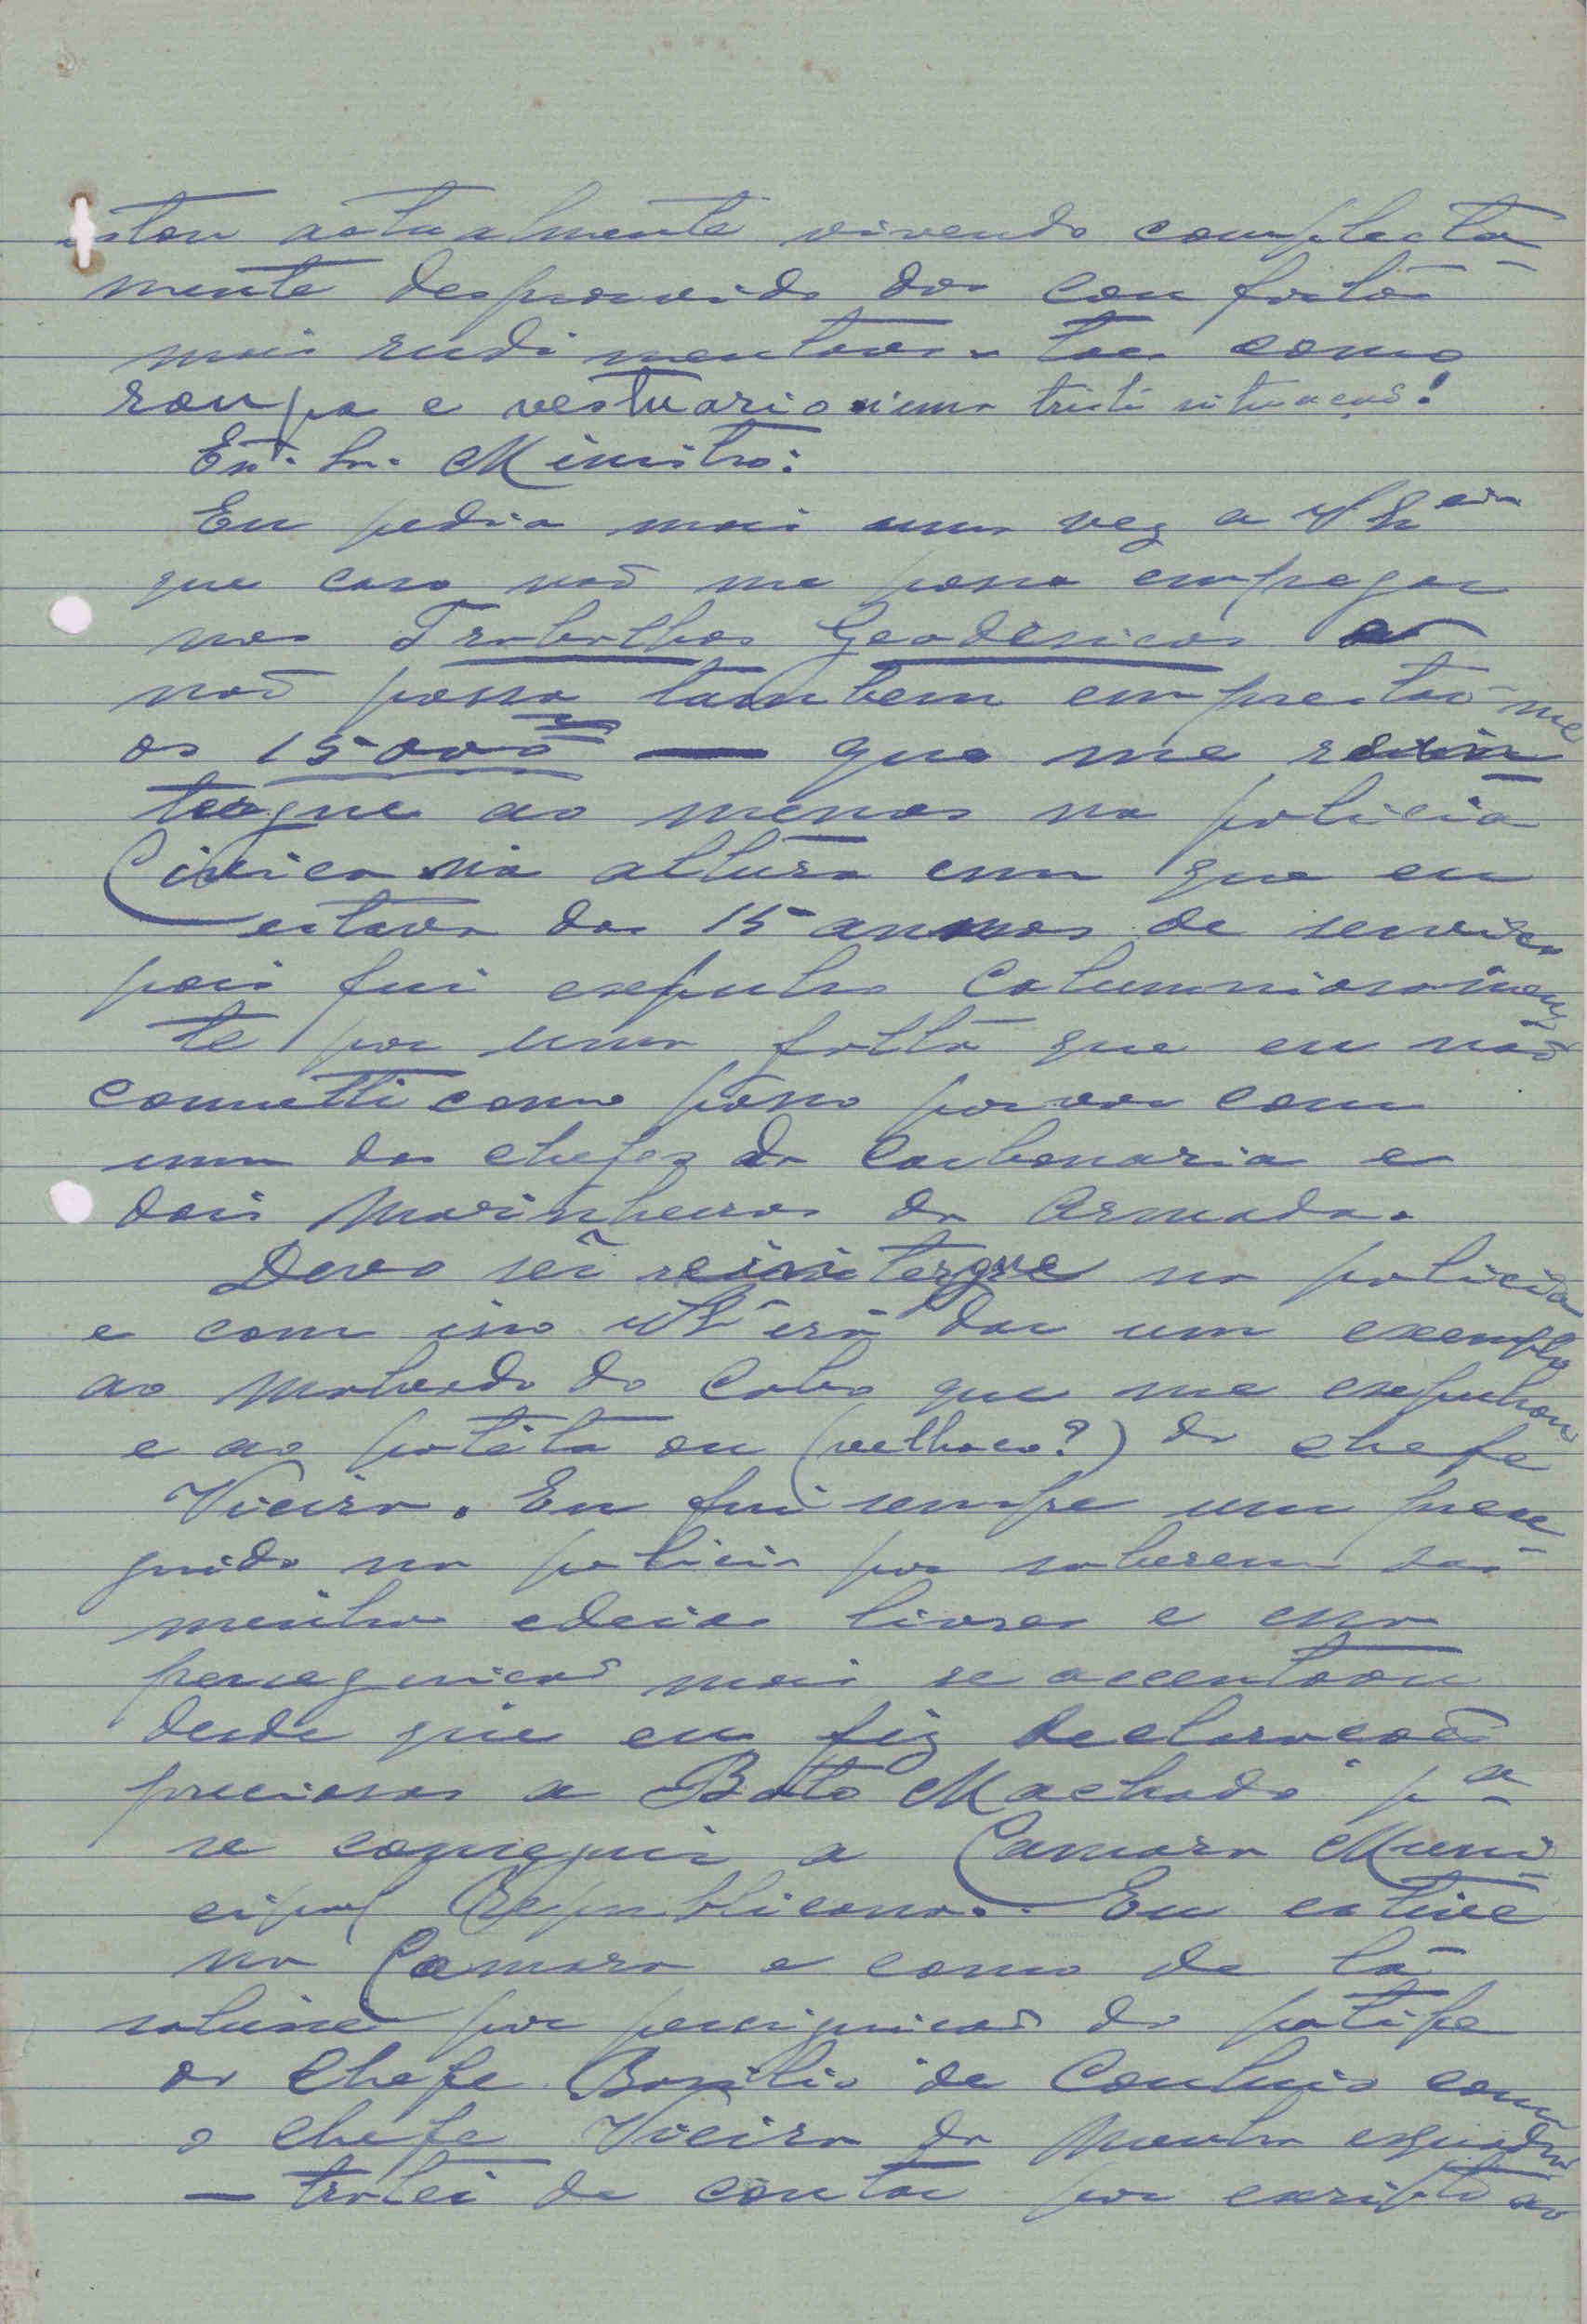 estou actualmente vivendo complecta-
mente desprovido dos confortos
mais rudimentares - taes como
roupa e vestuario n'uma triste situação!
Ex. Sr. Ministro:
Eu pedia mais uma vez a V Ex cia
que caso não me possa empregar
nos Trabalhos Geodesicos e
não possa tambem emprestar-me
os 15000 — que me rein
tergue ao menos na policia
Civica na altura em que eu
estava dos 15 annos de serviço
pois fui expulso calumniosamen
te por uma falta que eu não
cometti como posso provar com
um dos chefes da Carbonaria e
dois Marinheiros da Armada.
Devo sêr reintergue na policia
e com isso V Ex irá dar um exemplo
ao Malvado do Cabo que me expulsou
e ao patéta ou (velhaco?) do chefe
Vieira. Eu fui sempre um perse
guido na policia por saberem das
minhas edeias livres e essa
perseguição mais se accentoou
desde que eu fiz declarações
preciosas a Botto Machado p.a
se conseguir a Camara Muni-
cipal Republicana. Eu estive
na Camara e como de lá
sahisse por perseguição do patife
do Chefe Basilio de Conluio com
o chefe Vieira da minha esquadra
— tratei de contar por escripto ao